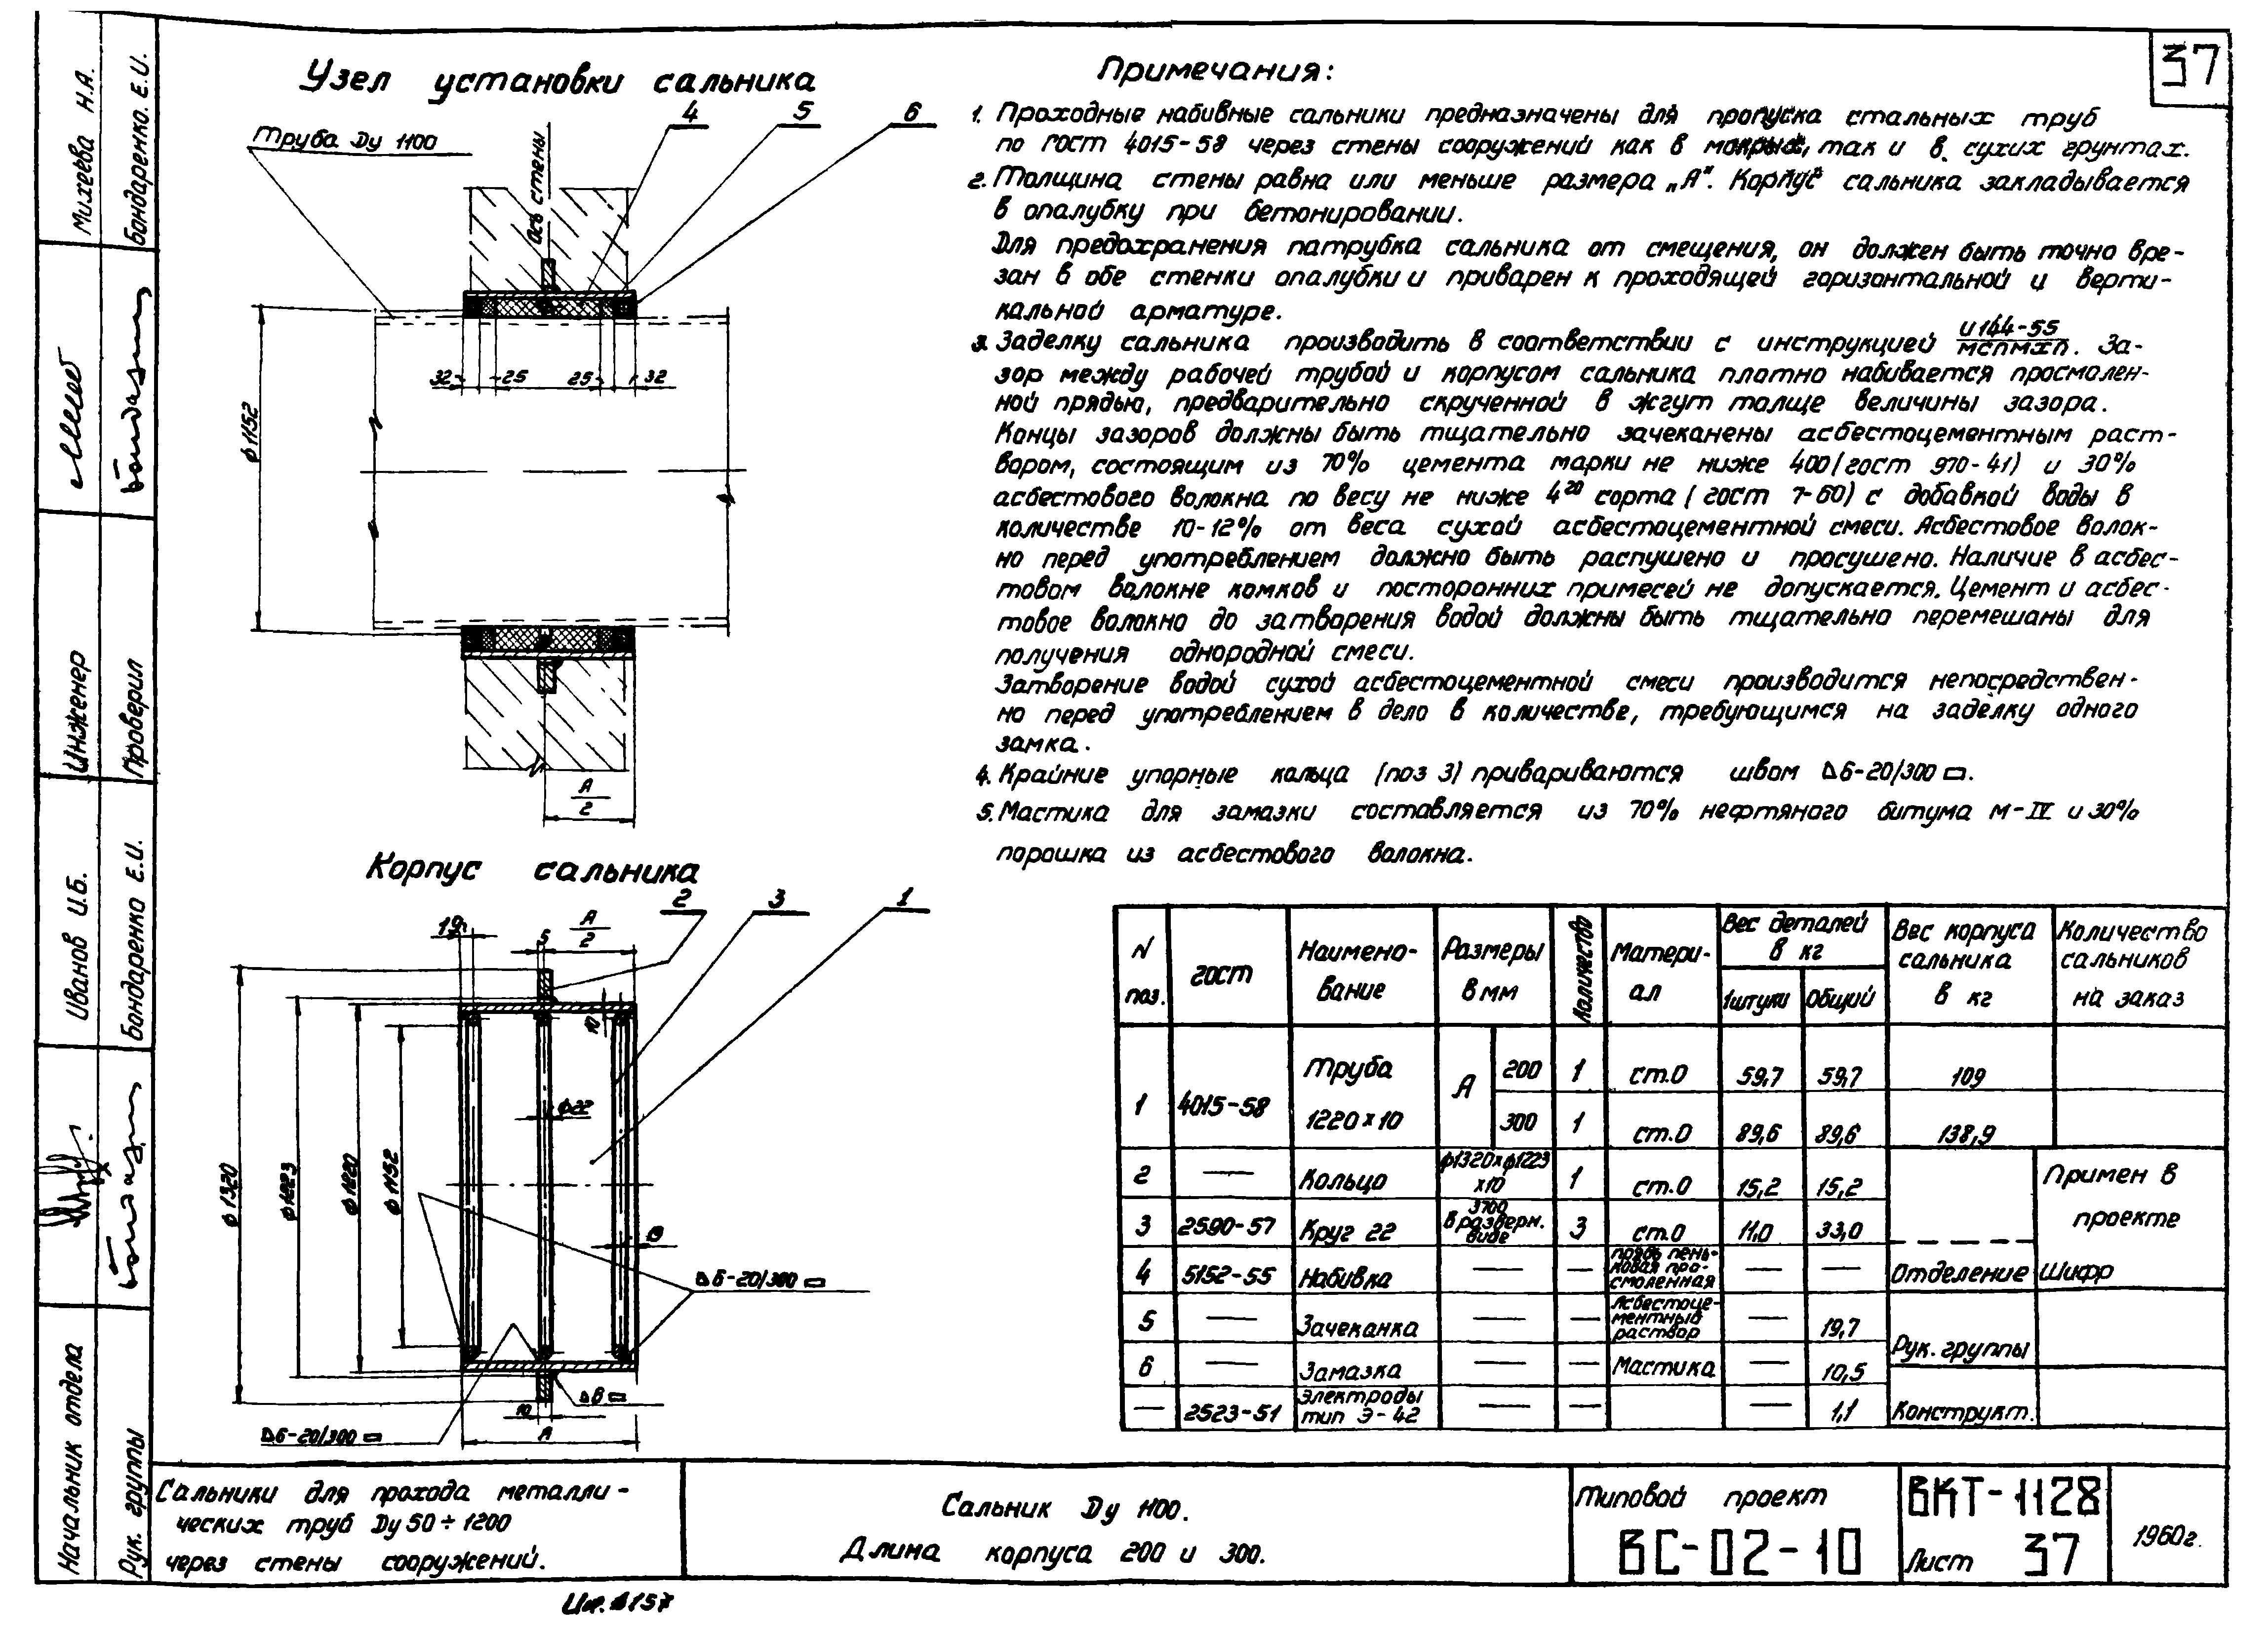 37
Узел установки сальника
Труба Ду 1100
4
5
6
Ось стены
32
25
25
32
ф1152
А
2
Корпус сальника
2
3
1
19
5
А
2
10
ф22
ф1320
ф1223
ф1220
ф1152
19
∆6-20/300
∆8
10
∆6-20/300
А
Примечания:
1. Проходные набивные сальники предназначены для пропуска стальных труб
по ГОСТ 4015-58 через стены сооружений как в мокрых, так и в сухих грунтах.
2. Толщина стены равна или меньше размера „А". Корпус сальника закладывается
в опалубку при бетонировании.
Для предохранения патрубка сальника от смещения, он должен быть точно вре-
зан в обе стенки опалубки и приварен к проходящей горизонтальной и верти-
кальной арматуре.
3. Заделку сальника производить в соответствии с инструкцией И144-55/МСПМХП. За-
зор между рабочей трубой и корпусом сальника плотно набивается просмолен-
ной прядью, предварительно скрученной в жгут толще величины зазора.
Концы зазоров должны быть тщательно зачеканены асбестоцементным раст-
вором, состоящим из 70% цемента марки не ниже 400 (гост 970-41) и 30%
асбестового волокна по весу не ниже 4го сорта (гост 7-60) с добавкой воды в
количестве 10-12% от веса сухой асбестоцементной смеси. Асбестовое волок-
но перед употреблением должно быть распушено и просушено. Наличие в асбес-
товом волокне комков и посторонних примесей не допускается. Цемент и асбес-
товое волокно до затворения водой должны быть тщательно перемешаны для
получения однородной смеси.
Затворение водой сухой асбестоцементной смеси производится непосредствен-
но перед употреблением в дело в количестве, требующимся на заделку одного
замка.
4. Крайние упорные кольца (поз 3) привариваются швом ∆6-20/300.
5. Мастика для замазки составляется из 70% нефтяного битума М-IV и 30%
порошка из асбестового волокна.
N поз. гост Наимено-вание Размеры в мм Количество Матери-ал Вес деталей в кг 1 штуки Общий Вес корпуса сальника в кг Количество сальников на заказ
1 4015-58 Труба 1220x10 А 200 1 ст.0 59,7 59,7 109
300 1 ст.0 89,6 89,6 138,9
2 — Кольцо ф1320xф1223 x10 1 ст.0 15,2 15,2
3 2590-57 Круг 22 3700 в разверн. виде 3 ст.0 11,0 33,0
4 5152-55 Набивка — — прядь пень-ковая про-смоленная — —
5 — Зачеканка — — Асбестоце-ментный раствор — 19,7
6 — Замазка — — Мастика — 10,5
— 2523-51 Электроды тип Э-42 — — — 1,1
Примен в
проекте
Отделение Шифр
Рук. группы
Конструкт.
Сальники для прохода металли-
ческих труб Ду 50÷1200
через стены сооружений.
Сальник Ду 1100.
Длина корпуса 200 и 300.
Типовой проект
ВС-02-10
ВКТ-1128
Лист 37
1960г.
Начальник отдела
Иванов И.Б.
Инженер
Михеева Н.А.
Рук. группы
Бондаренко Е.И.
Проверил
Бондаренко. Е.И.